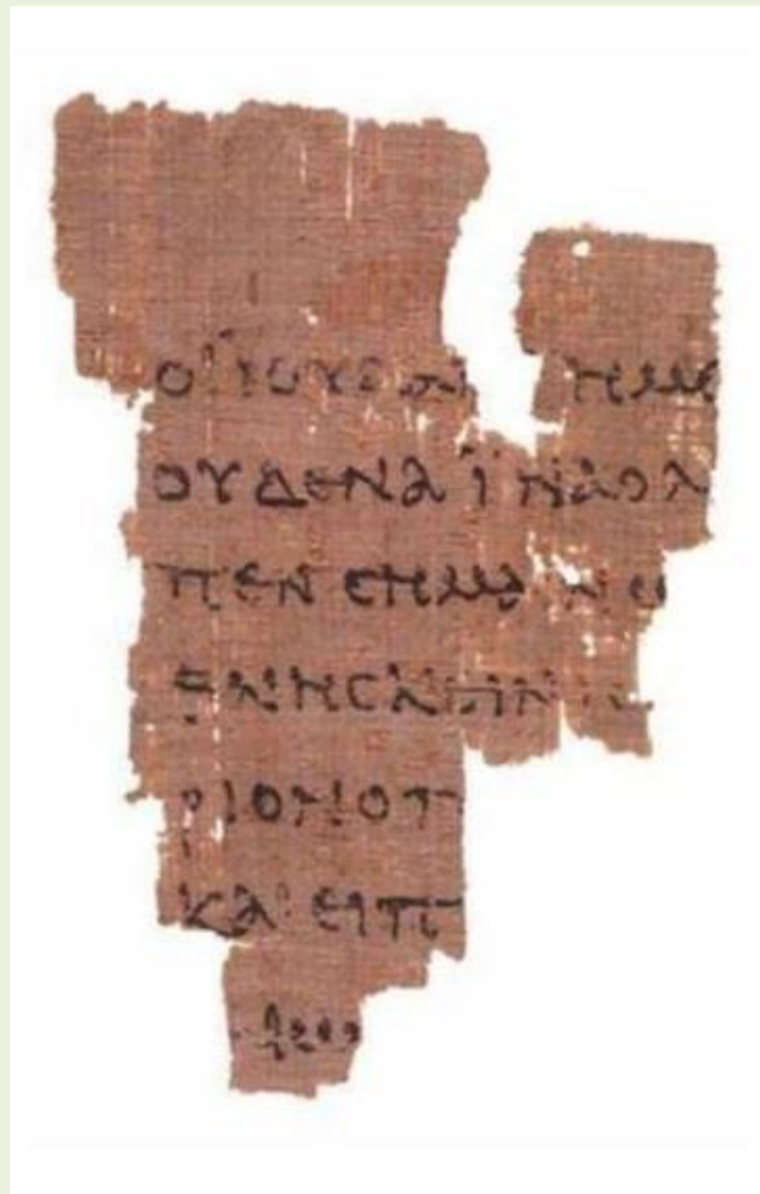 ΟΙ ΙΟΥΔΑΙ ΗΜΕ
ΟΥΔΕΝΑ ΪΝΑ ΟΛ
ΠΕΝ ΣΗΜΑΙΝΩ
ΘΝΗΣΚΕΙΝ ΙΣ
ΡΙΟΝ Ο Π
ΚΑΙ ΕΙΠ